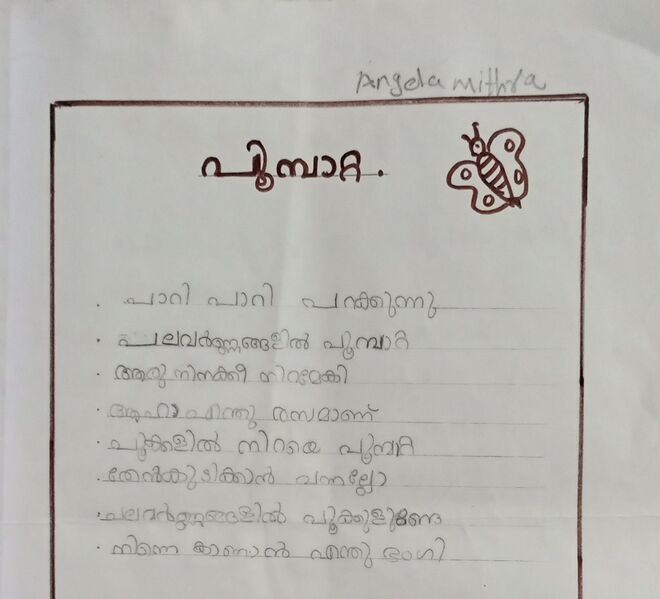 Angela mithra
പൂമ്പാറ്റ.
. പാറി പാറി പറക്കുന്നു
. പലവർണ്ണങ്ങളിൽ പൂമ്പാറ്റ
. ആരു നിനക്കീ നിറമേകി
. ആഹാ എന്തു രസമാണ്
. പൂക്കളിൽ നിറയെ പൂമ്പാറ്റ
. തേൻകുടിക്കാൻ വന്നല്ലോ
. പലവർണ്ണങ്ങളിൽ പൂക്കളുണ്ടേ
. നിന്നെ കാണാൻ എന്തു ഭംഗി